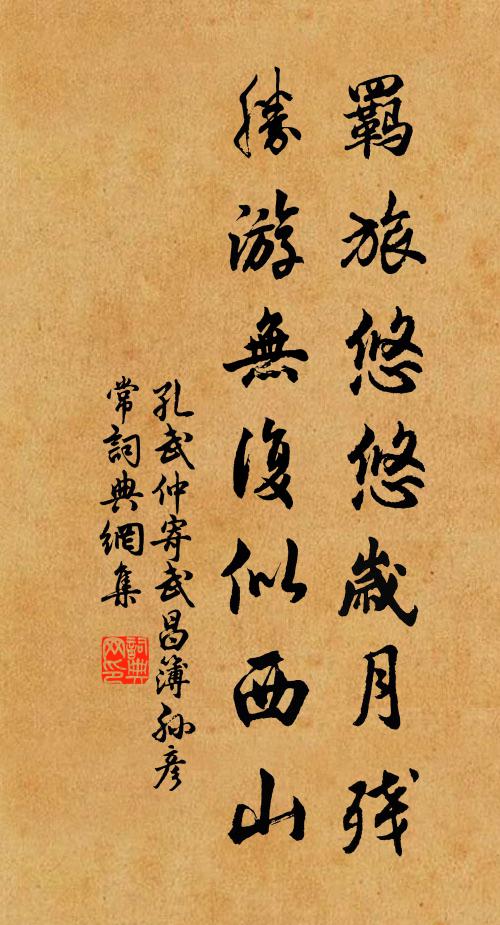 羈旅悠悠歲月残
勝游無復似西山
孔武仲寄武昌簿孫彥
常詞典網集
詞典
网印